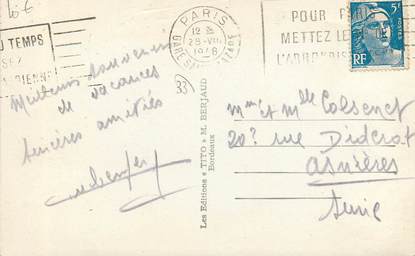 PARIS
12 H
28 - VII
1948
GARE ST LAZARE
POUR PARIS
METTEZ LE
5F
RF
U TEMPS
33
Meilleurs souvenirs
de vacances
sincères amitiés
Les Editions "TITO" M. BERJAUD
Bordeaux
Mme et Mlle Colsenet
20? rue Diderot
Asnières
Seine